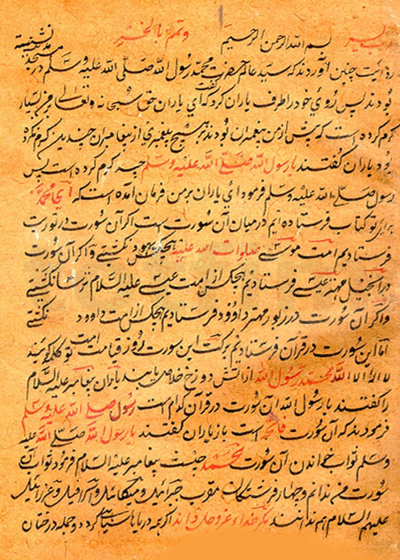 رب یسر بسم الله الرحمن الرحیم وتمم بالخیر
روایت چنین آورده‌ند که سید عالم حضرت محمد رسول الله صلی الله علیه وسلم در مسجد نشسته
بودند پس روی خود را طرف یاران کرد که ای یاران حق سبحانه وتعالی مرا بسیار
کرم کرده است که پیش از من پیغمبران بودند بر هیچ پیغمبری از پیغامبران چندین کرم نکرده
بود یاران گفتند یا رسول الله صلی الله علیه وسلم چه کرم کرده است پس
رسول صلی الله علیه وسلم فرمود ای یاران بر من فرمان آمده است که ای محمد
برای تو کتاب فرستاده ایم در میان آن سورت است اگر آن سورت در توریت
فرستادیم امت موسی صلوات الله علیه هیچ یهود نگشتی و اگر آن سورت
در انجیل مهتر عیسی فرستادیم هیچکس از امت عیسی علیه السلام ترسا نگشتی
و اگر آن سورت در زبور مهتر داوود فرستادیم هیچکس از امت داوود نگشتی
اما این سورت در قرآن فرستادیم برکت این سورت روز قیامت امت تو کلمه گویند
لا اله الا الله محمد رسول الله از آتش دوزخ خلاص یابند یاران پیغامبر علیه السلام
را گفتند یا رسول الله آن سورت در قرآن کدام است رسول صلی الله علیه وسلم
فرمودند که آن سورت فاتحه است باز یاران گفتند یا رسول الله صلی الله علیه
وسلم ثواب خواندن آن سورت چیست پیغامبر علیه السلام فرمود ثواب آن
سورت من ندانم و چهار فرشتگان مقرب جبرائیل و میکائیل و اسرافیل و عزرائیل
علیهم السلام هم ندانند مگر خدا عز وجل داند اگر چه دریا سیاهی گردد و جمله درختان